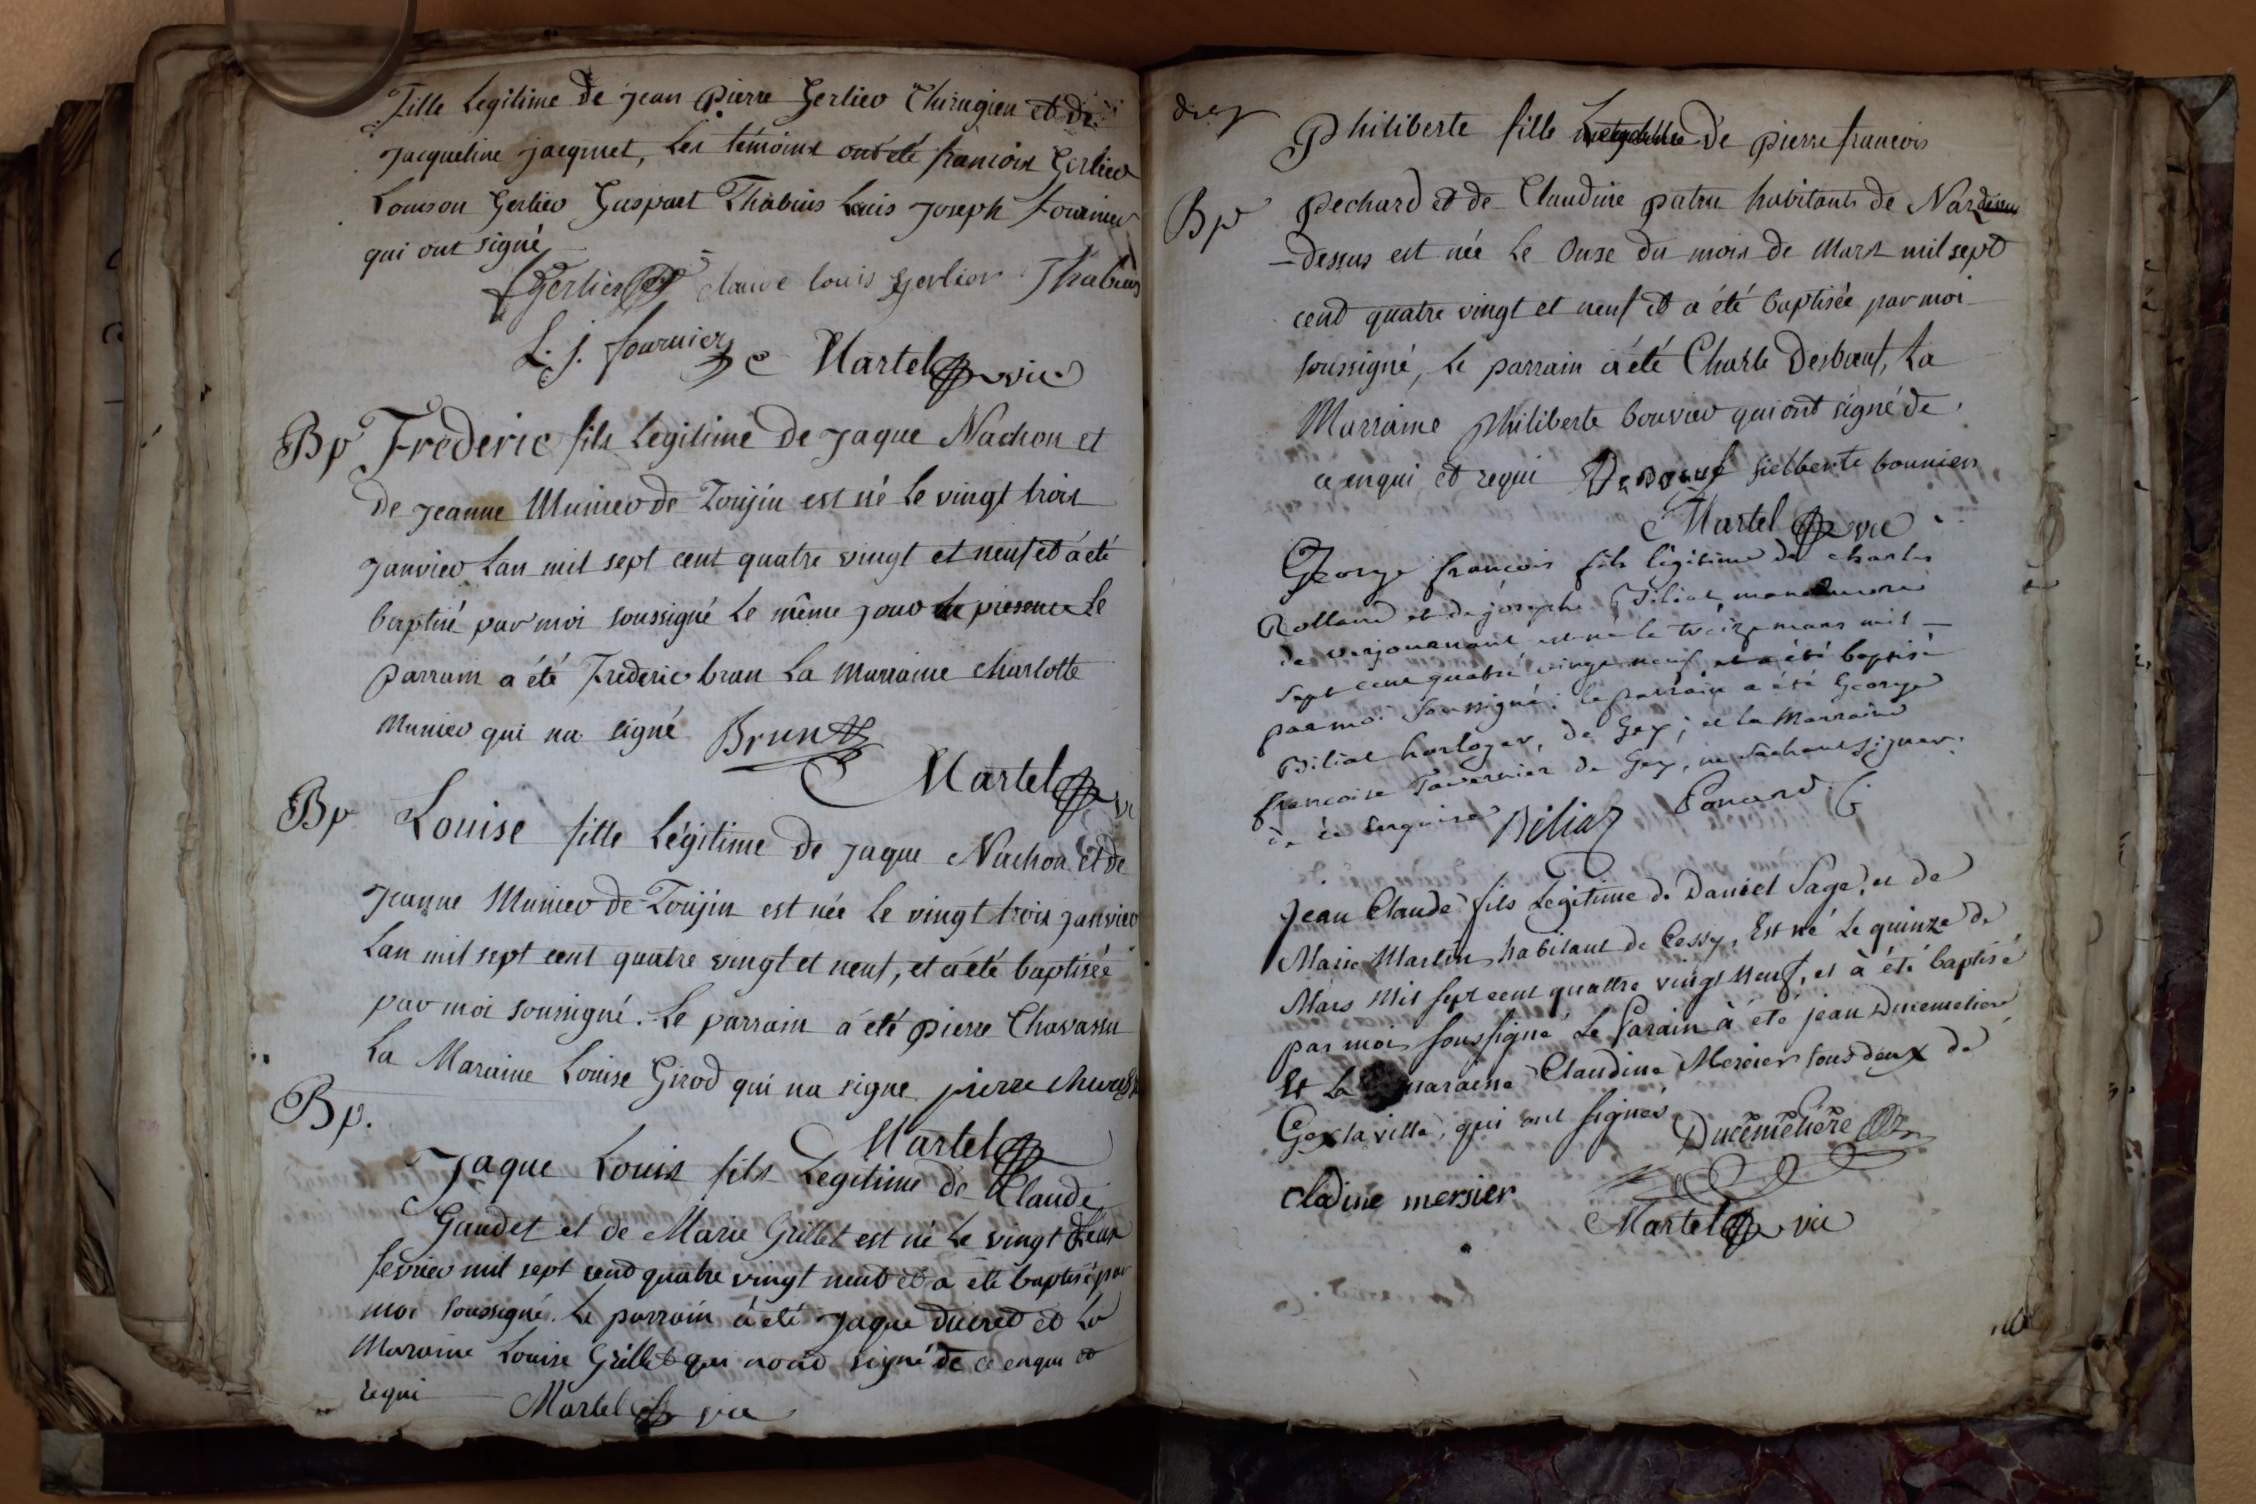 fille Legitime de jean pierre Gerlier Chirugien et de
jacqueline jacquet, Les témoins ont été francois Gerlier
Louison Gerlier Gaspart Thabuis Louis joseph fournier
qui ont signé
Gerlier claude louis gerlier Thabuis
L. j. fournier
Martel vic
Bp Frederic fils Legitime de jaque Nachon et
de jeanne Munier de Toujin est né le vingt trois
janvier Lan mil sept cent quatre vingt et neuf et á été
baptisé par moi soussigné le même jour Le
parrain a été Frederic brun La marraine charlotte
Munier qui na signé Brun
Martel vi
Bp Louise fille Légitime de jaque Nachon et de
jeanne Munier de Toujin est née le vingt trois janvier
Lan mil sept cent quatre vingt et neuf, et á été baptisée
par moi soussigné. Le parrain á été pierre Chavassu
La Maraine Louise Girod qui na signe pierre
Martel
Bp.
Jaque Louis fils Legitime de Claude
Gaudet et de Marie Grillet est né le vingt deux
fevrier mil sept cend quatre vingt neuf et a été baptisé par
moi soussigné. Le parrain á été jaque ducred et La
Maraine Louise Grillet qui signé de ce enqui et
requi
Martel vic
Philiberte fille de pierre francois
Bp pechard et de Claudine patru habitants de
-dessus est née Le Onse du mois de Mars mil sept
cend quatre vingt et neuf et a été baptisée par moi
soussigné, Le parrain á été Charle Desbœuf, La
Marraine philiberte bouvier qui ont signé de
ce enqui et requi Debœuf fielberte bouvier
Martel vic
George francois fils légitime de charles
Rolland et de josephe Biliat manœuvre
de verjouanant est né le treize mars mil
sept cent quatre vingt neuf et a été baptisé
par moi soussigné: le parrain a été George
Biliat horloger, de Gex; et la Marraine
francoise Tavernier de Gex, ne sachant signer.
de ce enquise Biliaz
Jean Claude fils Légitime de Daniel Sage, et de
Marie Martin habitant de Cessy, Est né Le quinze de
Mars Mil sept cent quattre vingt Neuf, et à été baptisé
par moi soussigné Le Parain à été jean Ducemetiere
Et La maraine Claudine Mercier tous deux de
Gex la ville, qui ont signés Ducémétiére
cladine mersier
Martel vic